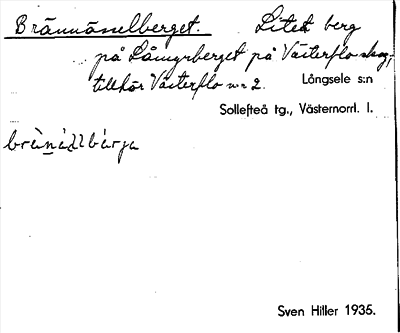 Brännåselberget. Litet berg
på Låmyrberget på Västerflo skog,
tillhör Västerflo nr 2. Långsele s:n
Sollefteå tg., Västernorrl. l.
Sven Hiller 1935.